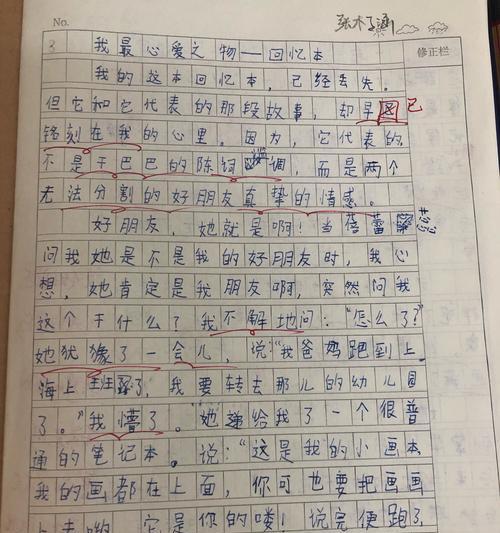 No.
修正栏
3 我最心爱之物——回忆本
我的这本回忆本，已经丢失。
但它和它代表的那段故事，却早已
铭刻在我的心里。因为，它代表的，
不是干巴巴的陈词滥调，而是两个
无法分割的好朋友真挚的情感。
好朋友，她就是啊！当蓓蕾
问我她是不是我的好朋友时，我心
想，她肯定是我朋友啊，突然问我
这个干什么？我不解地问：“怎么了？”
她犹豫了一会儿，说：“我爸妈跑到上
海上班了，我要转去那儿的幼儿园
了。”我懵了。她递给我了一个很普
通的笔记本。说：“这是我的小画本
我的画都在上面，你可也要把画画
上去哟，它是你的喽！说完便跑了